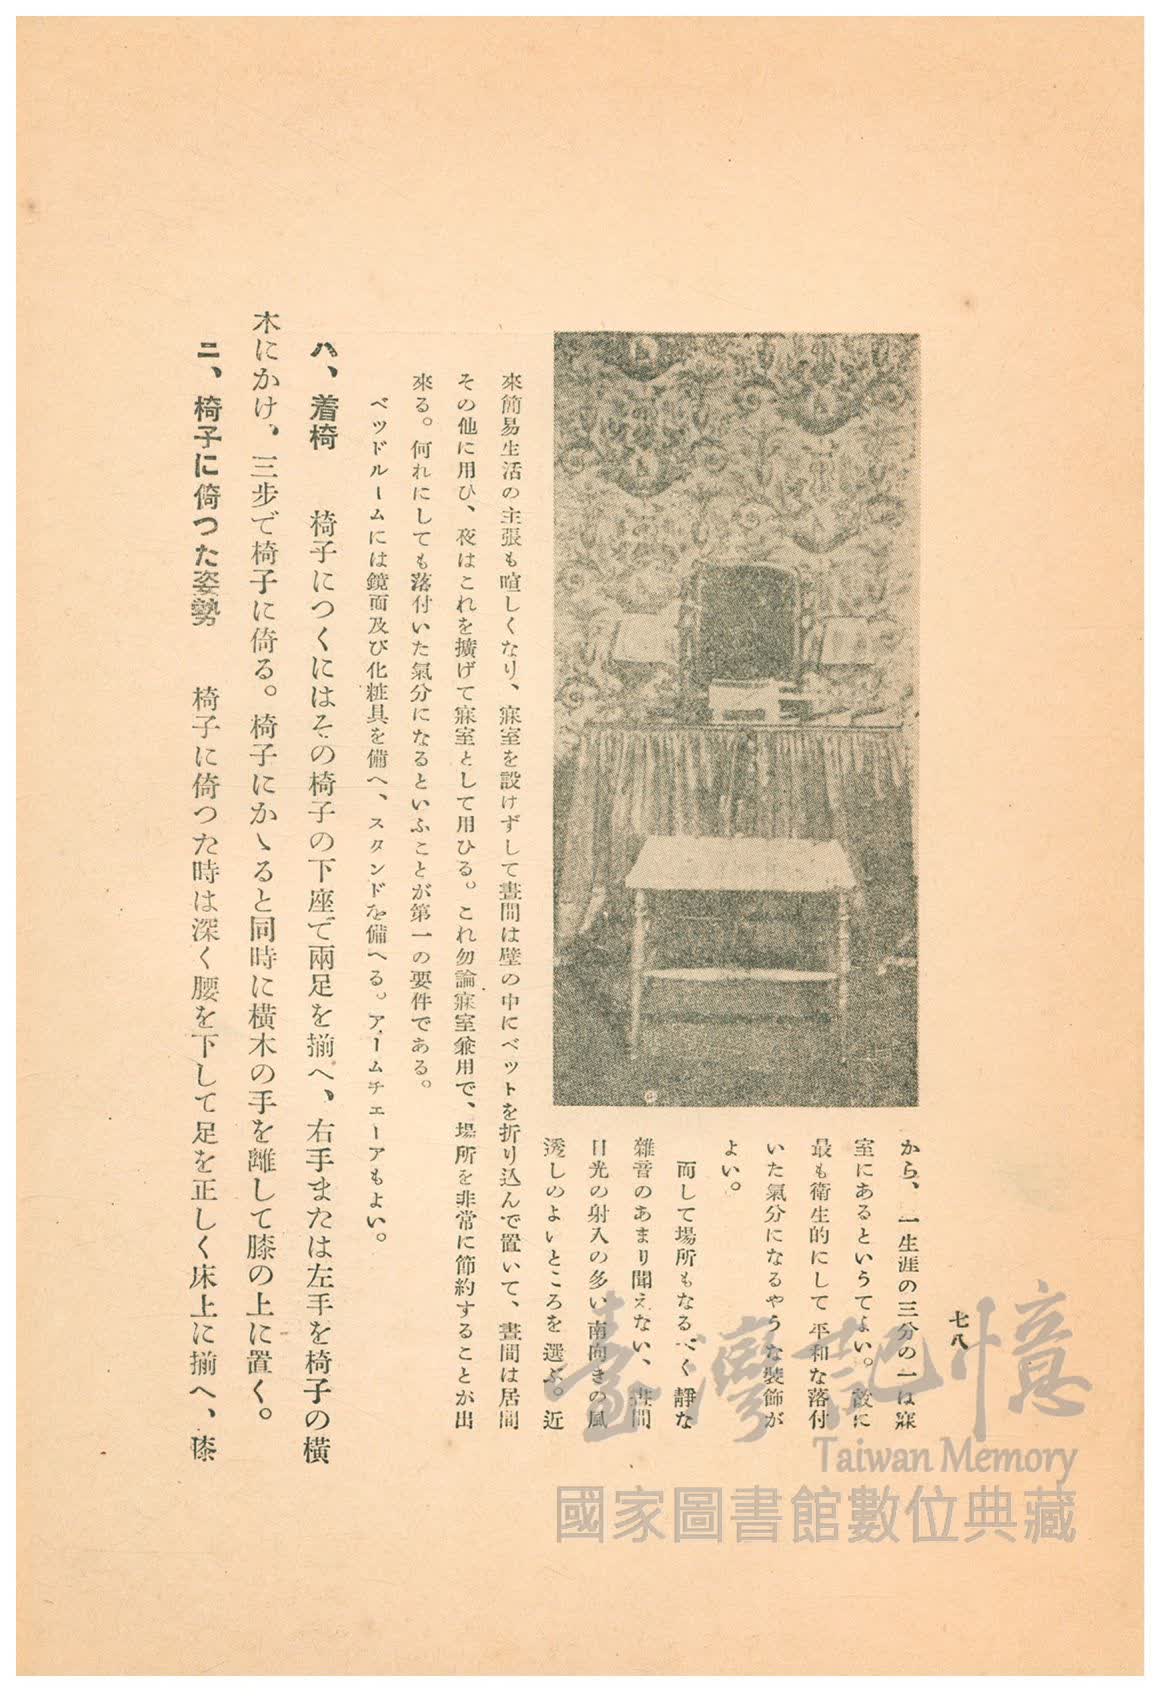 七八
から、一生涯の三分の一は寐
室にあるというてよい。故に
最も衛生的にして平和な落付
いた氣分になるやうな裝飾が
よい。
而して場所もなるべく靜な
雜音のあまり聞えない、晝間
日光の射入の多い南向きの風
透しのよいところを選ぶ。近
來簡易生活の主張も喧しくなり、寐室を設けずして晝間は壁の中にベットを折り込んで置いて、晝間は居間
その他に用ひ、夜はこれを擴げて寐室として用ひる。これ勿論寐室兼用で、場所を非常に節約することが出
來る。何れにしても落付いた氣分になるといふことが第一の要件である。
ベッドルームには鏡面及び化粧具を備へ、スタンドを備へる。アームチエーアもよい。
ハ、着椅　椅子につくにはその椅子の下座で兩足を揃へ、右手または左手を椅子の橫
木にかけ、三步で椅子に倚る。椅子にかゝると同時に橫木の手を離して膝の上に置く。
ニ、椅子に倚つた姿勢　椅子に倚つた時は深く腰を下して足を正しく床上に揃へ、膝
臺灣記憶
Taiwan Memory
國家圖書館數位典藏